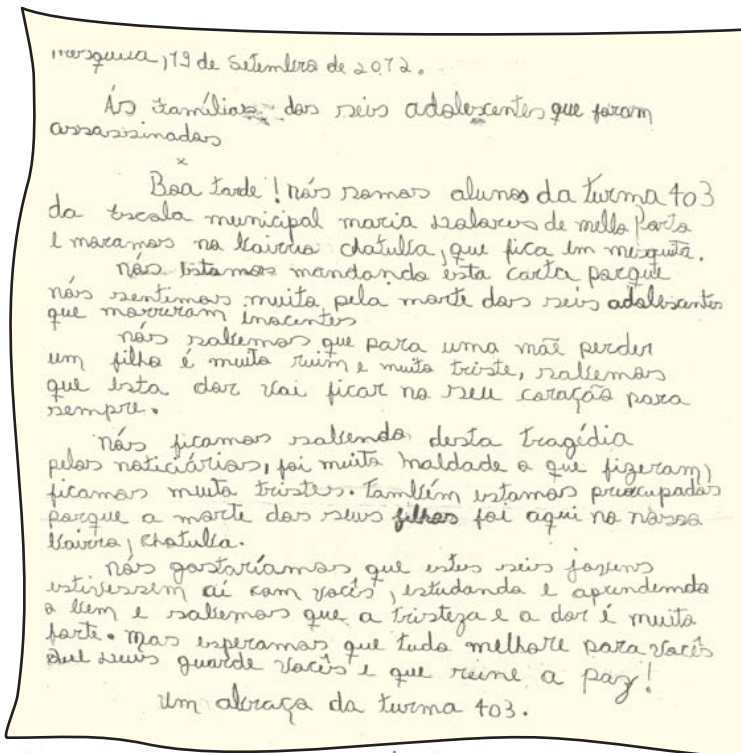 mesquita, 19 de Setembro de 2012.
Ás famílias dos seis adolescentes que foram
assassinados
x
Boa tarde! nós somos alunos da turma 403
da Escola municipal maria de mello Porto
e moramos no bairro chatulba, que fica em mesquita.
nós estamos mandando esta carta porque
nós sentimos muito pela morte dos seis adolescentes
que morreram inocentes
nós sabemos que para uma mãe perder
um filho é muito ruim e muito triste, sabemos
que esta dor vai ficar no seu coração para
sempre.
nós ficamos sabendo desta tragédia
pelos noticiários, foi muita maldade o que fizeram,
ficamos muito tristes. também estamos preocupados
porque a morte dos seus filhos foi aqui no nosso
bairro, chatulba.
nós gostaríamos que estes seis jovens
estivessem aí com vocês, estudando e aprendendo
o bem e sabemos que a tristeza e a dor é muito
forte. mas esperamos que tudo melhore para vocês
guarde vocês e que reine a paz!
um abraço da turma 403.